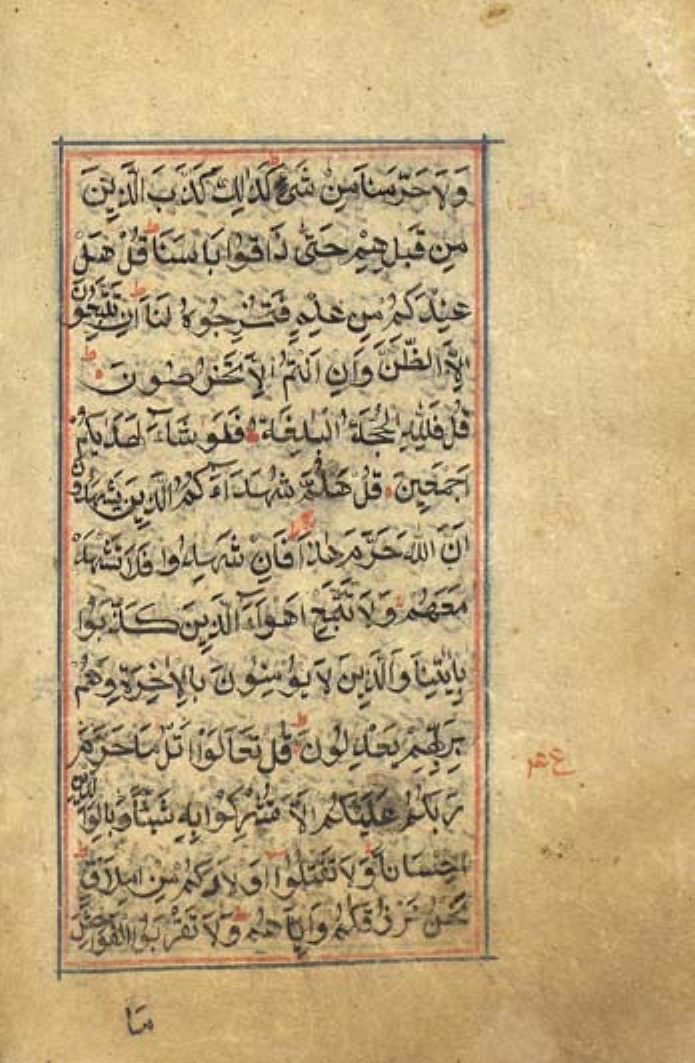 وَلَا حَرَّمْنَا مِنْ شَیْءٍ كَذٰلِكَ كَذَّبَ الَّذِیْنَ
مِنْ قَبْلِهِمْ حَتّٰی ذَاقُوْا بَاْسَنَا قُلْ هَلْ
عِنْدَكُمْ مِنْ عِلْمٍ فَتُخْرِجُوْهُ لَنَا اِنْ تَتَّبِعُوْنَ
اِلَّا الظَّنَّ وَاِنْ اَنْتُمْ اِلَّا تَخْرُصُوْنَ
قُلْ فَلِلّٰهِ الْحُجَّةُ الْبَالِغَةُ فَلَوْ شَآءَ لَهَدٰىكُمْ
اَجْمَعِیْنَ قُلْ هَلُمَّ شُهَدَآءَكُمُ الَّذِیْنَ یَشْهَدُوْنَ
اَنَّ اللّٰهَ حَرَّمَ هٰذَا فَاِنْ شَهِدُوْا فَلَا تَشْهَدْ
مَعَهُمْ وَلَا تَتَّبِعْ اَهْوَآءَ الَّذِیْنَ كَذَّبُوْا
بِاٰیٰتِنَا وَالَّذِیْنَ لَا یُؤْمِنُوْنَ بِالْاٰخِرَةِ وَهُمْ
بِرَبِّهِمْ یَعْدِلُوْنَ قُلْ تَعَالَوْا اَتْلُ مَا حَرَّمَ
رَبُّكُمْ عَلَیْكُمْ اَلَّا تُشْرِكُوْا بِهٖ شَیْئًا وَّبِالْوَالِدَیْنِ
اِحْسَانًا وَلَا تَقْتُلُوْا اَوْلَادَكُمْ مِنْ اِمْلَاقٍ
نَحْنُ نَرْزُقُكُمْ وَاِیَّاهُمْ وَلَا تَقْرَبُوا الْفَوَاحِشَ
مَا